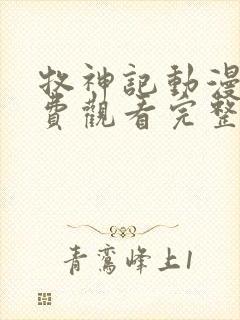 牧神記動漫
費觀看完整
青鸞峰上1